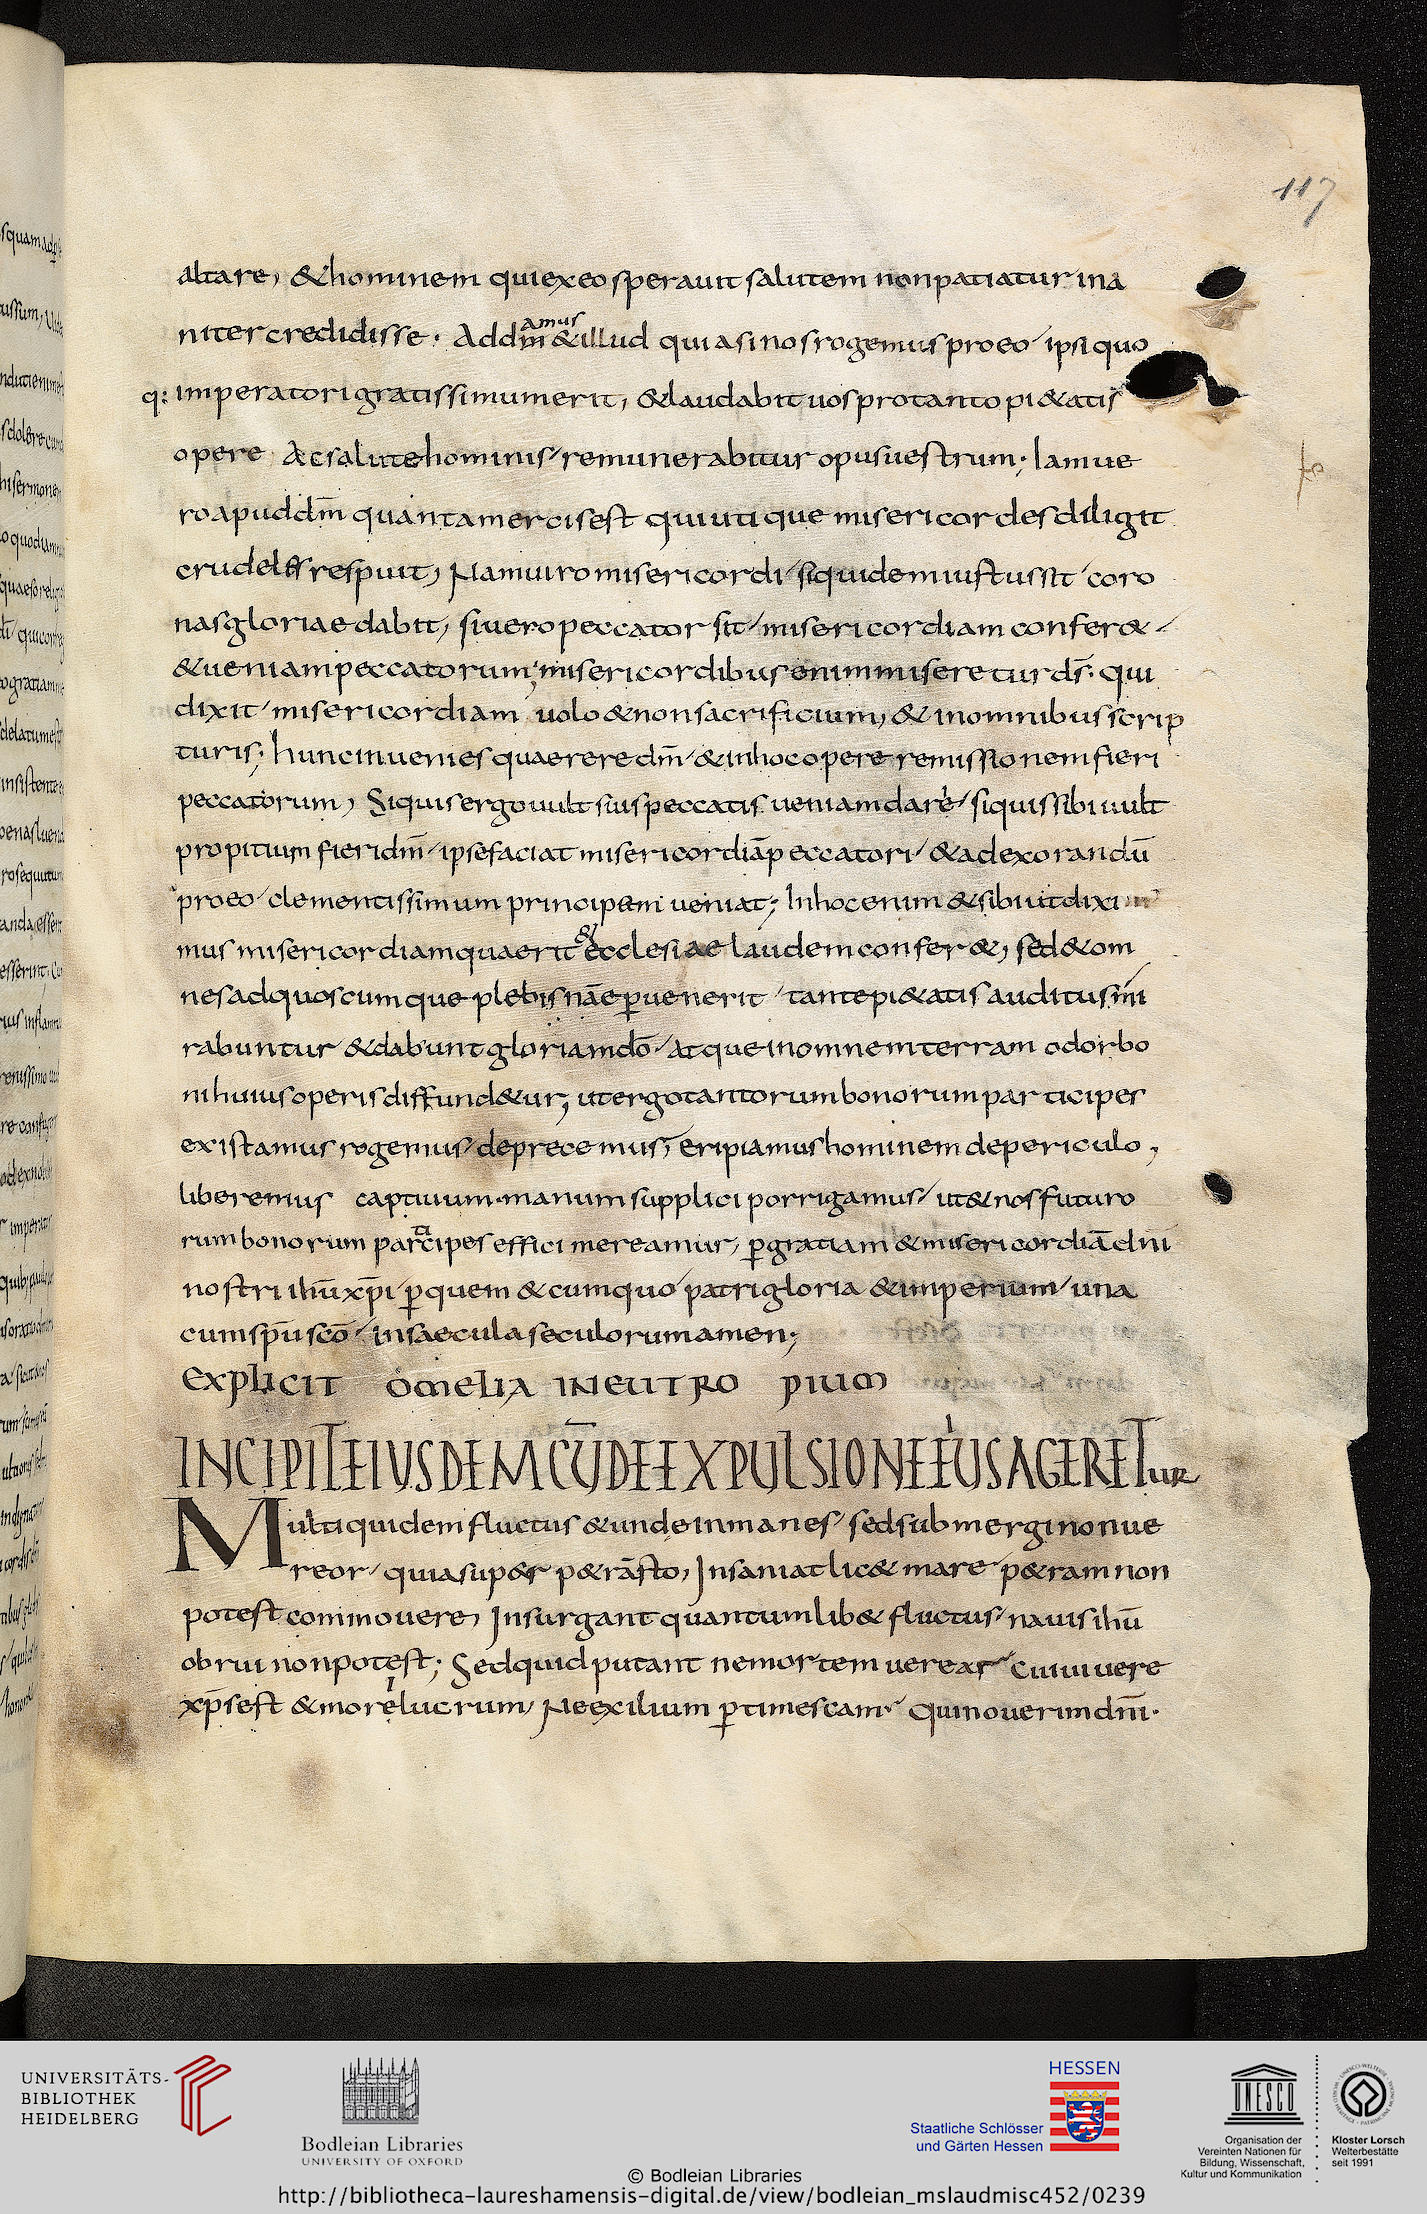 117
altare, & hominem qui ex eo sperauit salutem non patiatur ina
niter credidisse. Addam̄ amus & illud quia si nos rogemus pro eo ipsi quo
q: imperatori gratissimum erit, & laudabit uos pro tanto pi&atis
opere Ac salute hominis remunerabitur opus uestrum; Iam ue
ro apud dm̄ quanta mercis est qui utique misericordes diligit
crudeles respuit, Nam uiro misericordi siquidem iustus sit coro
nas gloriae dabit, si uero peccator sit misericordiam confer&
& ueniam peccatorum; misericordibus enim miseretur ds̄. qui
dixit misericordiam uolo & non sacrificium, & in omnibus scrip
turis; hunc inuenies quaerere dm̄ & in hoc opere remissionem fieri
peccatorum, Siquis ergo uult suis peccatis ueniam dare siquis sibi uult
propitium fieri dm̄ ipse faciat misericordiā peccatori & ad exorandū
pro eo clementissimum principem ueniat; In hoc enim & sibi ut dixi
mus misericordiam quaerit & ecclesiae laudem confer&, sed & om
nes ad quoscumque plebis nāe p̄uenerit tante pi&atis auditus mi
rabuntur & dabunt gloriam dō atque in omnem terram odor bo
ni huius operis diffund&ur, ut ergo tantorum bonorum participes
existamus rogemus deprecemus, eripiamus hominem de periculo,
liberemus captiuum. manum supplici porrigamus ut & nos futuro
rum bonorum participes effici mereamur, p̄ gratiam & misericordiā dn̄i
nostri ihū xp̄i p̄ quem & cum quo patri gloria & imperium una
cum sp̄u scō in saecula seculorum amen;
Explicit omelia in eutropium
INCIPIT EIUSDEM CŪ DE EXPULSIONE EIUS AGERETUR
Multi quidem fluctus & unde inmanes sed submergi non ue
reor quia sup&r p&rā sto, Insaniat lic& mare p&ram non
potest commouere, Insurgant quantumlib& fluctus nauis ihū
obrui non potest; Sed quid putant ne mortem uerear Cui uiuere
xp̄s est & mori lucrum, Ne exilium p̄timescam Qui nouerim dn̄i.
UNIVERSITÄTS-
BIBLIOTHEK
HEIDELBERG
Bodleian Libraries
UNIVERSITY OF OXFORD
HESSEN
Staatliche Schlösser
und Gärten Hessen
UNESCO
Organisation der
Vereinten Nationen für
Bildung, Wissenschaft,
Kultur und Kommunikation
Kloster Lorsch
Welterbestätte
seit 1991
© Bodleian Libraries
http://bibliotheca-laureshamensis-digital.de/view/bodleian_mslaudmisc452/0239